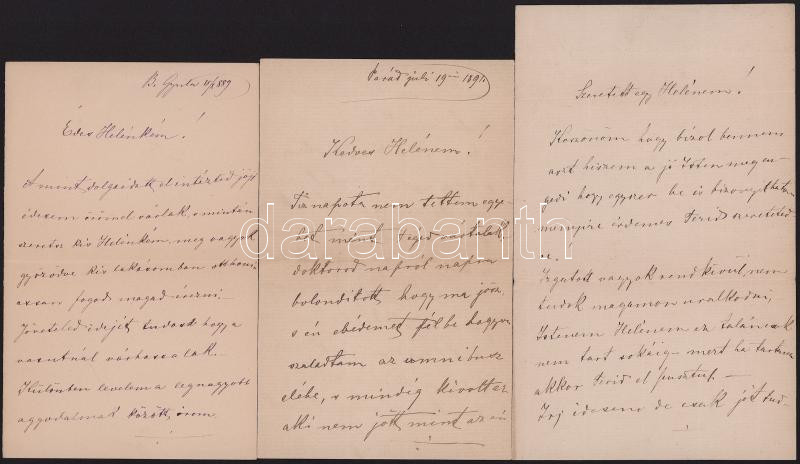 B. Gyula 889
Édes Helénkém!
Amint dolgaidat elintézted jöjj
édesem örömmel várlak, s miután
szeretsz kis Helénkém, meg vagyok
győződve kis lakásomban otthono-
assan fogod magad érezni.
Jöveteled idejét tudasd hogy a
vasutnál várhassalak.
Különben levelem a legnagyobb
aggodalmak között, örom
Parád juli 19 1891.
Kedves Helénem!
Tiz napota nem tettem egye-
bet mint téged vártalak
doktorod napról napra
bolonditott, hogy ma jösz,
s én ebédemet félbe hagyva
szaladtam az omnibusz
elébe, s mindig kivolt ez
aki nem jött mint az én
Szeretett egy Helénem!
Köszönöm hogy bizol bennem
azt hiszem a jó Isten megen-
gedi hogy egyszer be is bizonyithatom
mennyire érdemes Terid szereteted-
re.
Izgatott vagyok rendkivül, nem
tudok magamon uralkodni,
Istenem Helénem ez talán csak
nem tart sokáig - mert ha tartana
akkor Terid el pusztul. -
Irj édesem de csak jót tud-
darabanth